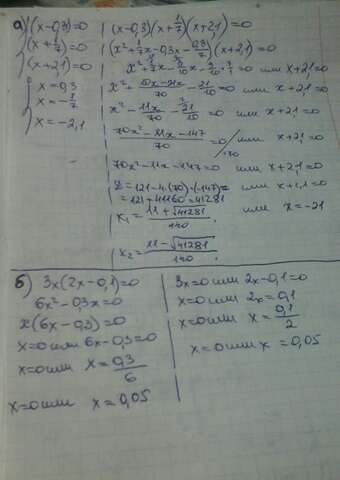 а) (x-0,3)=0
(x+1/7)=0
(x+2,1)=0
x=0,3
x=-1/7
x=-2,1
(x-0,3)(x+1/7)(x+2,1)=0
(x²+1/7x-0,3x-0,3/7)(x+2,1)=0
=0 или x+2,1=0
=0 или x+2,1=0
x²-11x/70-21/10=0 или x+2,1=0
70x²-11x-147/70=0 /·70 или x+2,1=0
70x²-11x-147=0 или x+2,1=0
D=121-4·(70)·(-147)= или x+2,1=0
=121+41160=41281
x₁=11+√41281/140. или x=-21
x₂=11-√41281/140.
б) 3x(2x-0,1)=0
6x²-0,3x=0
x(6x-0,3)=0
x=0 или 6x-0,3=0
x=0 или x=0,3/6
x=0 или x=0,05
3x=0 или 2x-0,1=0
x=0 или 2x=0,1
x=0 или x=0,1/2
x=0 или x=0,05